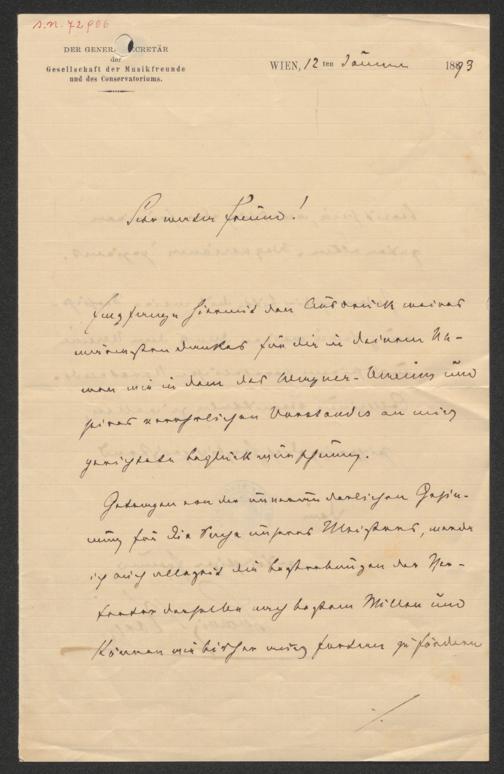 S.N. 72906
DER GENERALSECRETÄR
der
Gesellschaft der Musikfreunde
und des Conservatoriums.
WIEN, 12 ten Jänner 1893
Sehr werter Freund!
Empfange hiermit den Ausdruck meines
wärmsten Dankes für die in deinem Na-
men wie in dem des Wagner-Vereins und
seines verehrlichen Vorstandes an mich
gerichtete Beglückwünschung.
Getragen von der unveränderlichen Gesin-
nung für die Sache unseres Meisters, werde
ich auch allezeit die Bestrebungen der Ver-
treter derselben nach bestem Willen und
Können wie bisher auch fortan zu fördern
./.